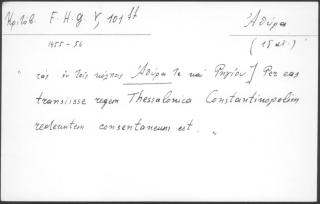 Κριτόβ. F.H.G. V, 101 ff Ἀθύρα
1455-56 (15 αἰ.)
" τὰς ἐν ταῖς κώμαις Ἀθύρα τε καὶ Ρηγίου] Per eas
transiisse regem Thessalonica Constantinopolim
redeuntem consentaneum est. "